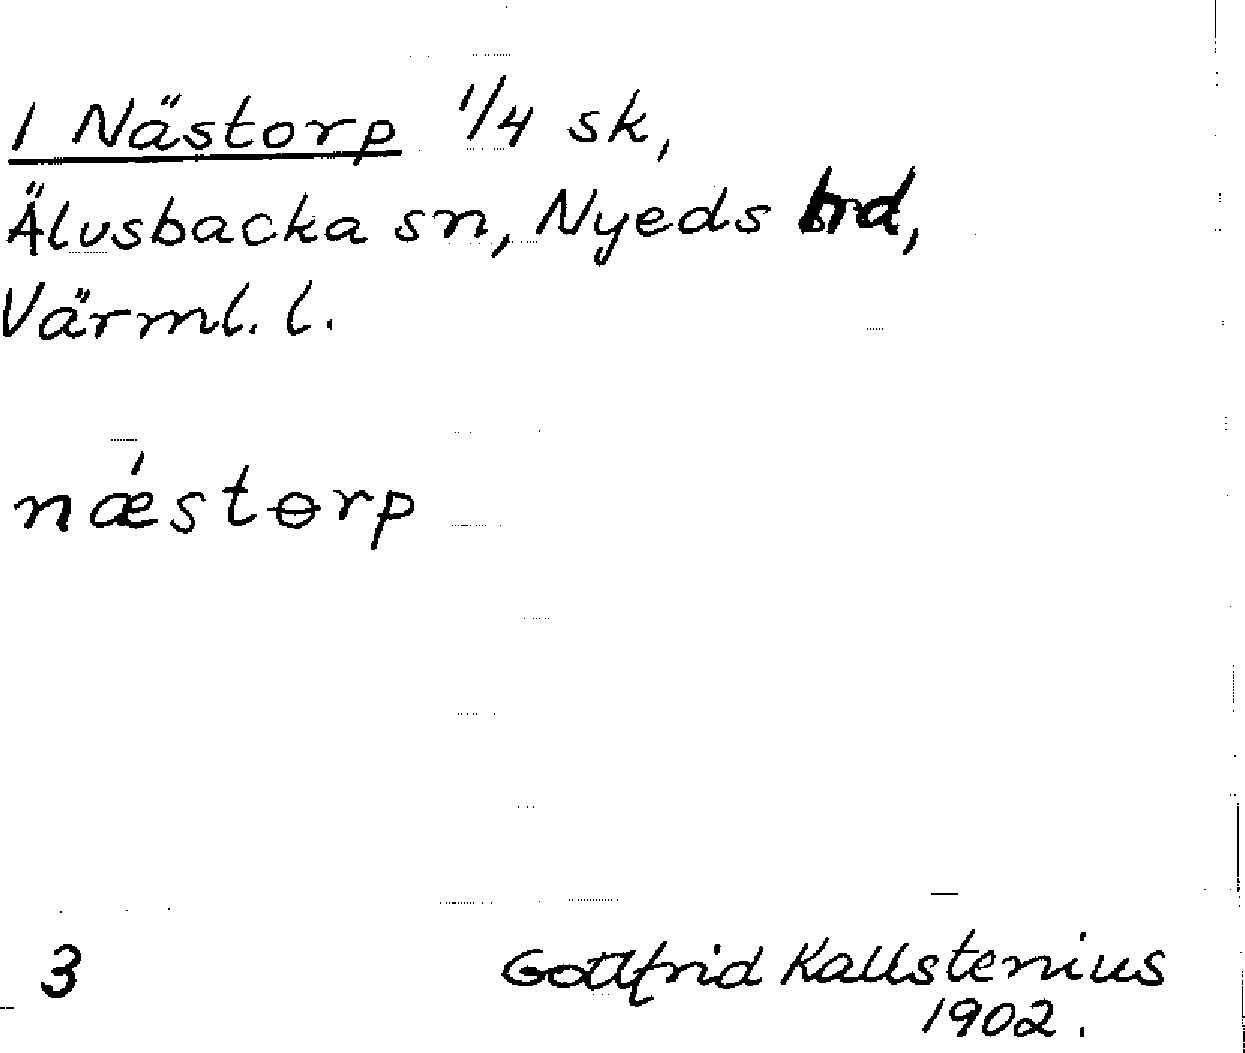 1 Nästorp 1/4 sk,
Älvsbacka sn, Nyeds hrd,
Värml. l.
nǽstɵrp
3
Gottfrid Kallstenius
1902.